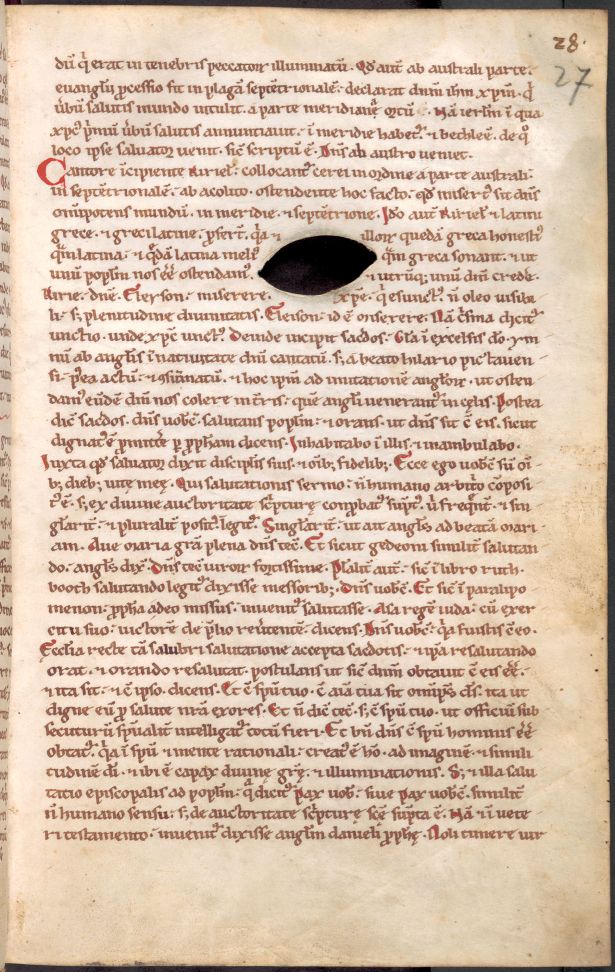 28.
27
diū q̄ erat in tenebris peccatoꝝ illuminatū. Qđ aut̄ ab australi parte.
euangłii p̄cessio fit in plagā septētrionalē. declarat dn̄m ih̄m xp̄m. q̄
ūbū salutis mundo intulit. a parte meridiana ortū. Nā ierłm ī qua
xp̄c p̄mū ūbū salutis annuntiauit. ī meridie habet᷑. ⁊ bethleē. de q°
loco ipse saluator uenit. sic̄ scriptū ē. Dn̄s ab austro ueniet.
Cantore īcipiente kiriel. collocant᷑ cerei in ordine a parte australi.
in septētrionalē. ab acolito. ostendente hoc facto. qđ misert᷑ sit dn̄s
om̄ipotens mundū. in meridie. ⁊ septētrione. Ido aut̄ kiriel. ⁊ latini
grece. ⁊ greci latine. p̄fert̄. q̄a ⁊ illoꝝ quedā greca honesti᷑
q̄m latina. ⁊ q̄dā latina meli᷑ q̄m greca sonant. ⁊ ut
unū popłm nos ēē ostendam᷑. ⁊ utrūq; unū dm̄ crede.
kirie. dn̄e. Eleyson. miserere. xp̄e. q̄ ē unct᷑. n̄ oleo uisibi-
li. s; plenitudine diuinitatis. Eleison. id ē miserere. Nā c̄sma dicit᷑
unctio. unde xp̄c unct᷑. Deinde incipit sac̄dos. Gła ī excelsis dō. ymnū
nū ab angłis ī natiuitate dn̄i cantatū. s; a beato hilario pictauen-
si. p̄ea actū. ⁊ ꝯsūmatū. ⁊ hoc ip̄m ad imitationē angłoꝝ. ut osten-
dam᷑ eundē dn̄m nos colere in t̄ris. quē angłi uenerant᷑ in cęlis. Postea
dic̄ sac̄dos. dn̄s uobc̄. salutans popłm. ⁊ orans. ut dn̄s sit c̄ eis. sicut
dignat᷑ ē p̄mitt̄e p̄ p̄pħam dicens. Inhabitabo ī illis. ⁊ inambulabo.
Iuxta qđ saluator dixit discipłis suis. ⁊ oīb; fidelib;. Ecce ego uobc̄ sū oī-
b; dieb; uitę męę. Qui salutationis sermo. n̄ humano arbit̄o cōposi-
t᷑ ē. s; ex diuine auctoritate sc̄pturę cōpbat᷑ sūpt᷑. ū freq̄nt̄. ⁊ sin-
glarit̄. ⁊ pluralit̄ posit᷑ legit᷑. Singlarit̄. ut ait angłs ad beatā mari-
am. Aue maria grā plena dn̄s tec̄. Et sicut gedeon similit̄ salutan-
do. angłs dix̄. Dn̄s tec̄ uiroꝝ fortissime. Plałit̄ aut̄. sic̄ ī libro ruth.
booth salutando legit᷑ dixisse messorib;. Dn̄s uobc̄. Et sic̄ ī paralipo-
menon. p̄pħa a deo missus. inuenit᷑ salutasse. Asa regē iuda. cū exer-
citu suo. uictorē de p̄lio reūtentē. dicens. Dn̄s uobc̄. q̄a fuistis c̄ eo.
Ecclia recte tā salubri salutatione accepta sac̄dotis. ⁊ ip̄a resalutando
orat. ⁊ orando resalutat. postulans ut sic̄ dn̄m obtauit c̄ eis ēē.
⁊ ita sit. ⁊ c̄ ipso. dicens. Et c̄ sp̄u tuo. c̄ aīa tua sit om̄ip̄s dš. ita ut
digne eū p̄ salute nr̄a exores. Et n̄ dic̄ tec̄. s; c̄ sp̄u tuo. ut officiū sub
secuturū sp̄ualit̄ intelligat᷑ totū fieri. Et bn̄ dn̄s c̄ sp̄u hominis ēē
obtat᷑. q̄a ī sp̄u ⁊ mente rationali. creat᷑ ē hō. ad imaginē. ⁊ simili-
tudinē dī. ⁊ ibi ē capax diuinę grę. ⁊ illuminationis. S; ⁊ illa salu
tatio episcopalis ad popłm. q̄ dicit᷑ pax uob̄. siue pax uobc̄. similit̄
n̄ humano sensu. s; de auctoritate sc̄pturę sc̄ę sūpta ē. Nā ⁊ ī uete-
ri testamento. inuenit᷑ dixisse angłm danieli p̄pħę. Noli timere uir